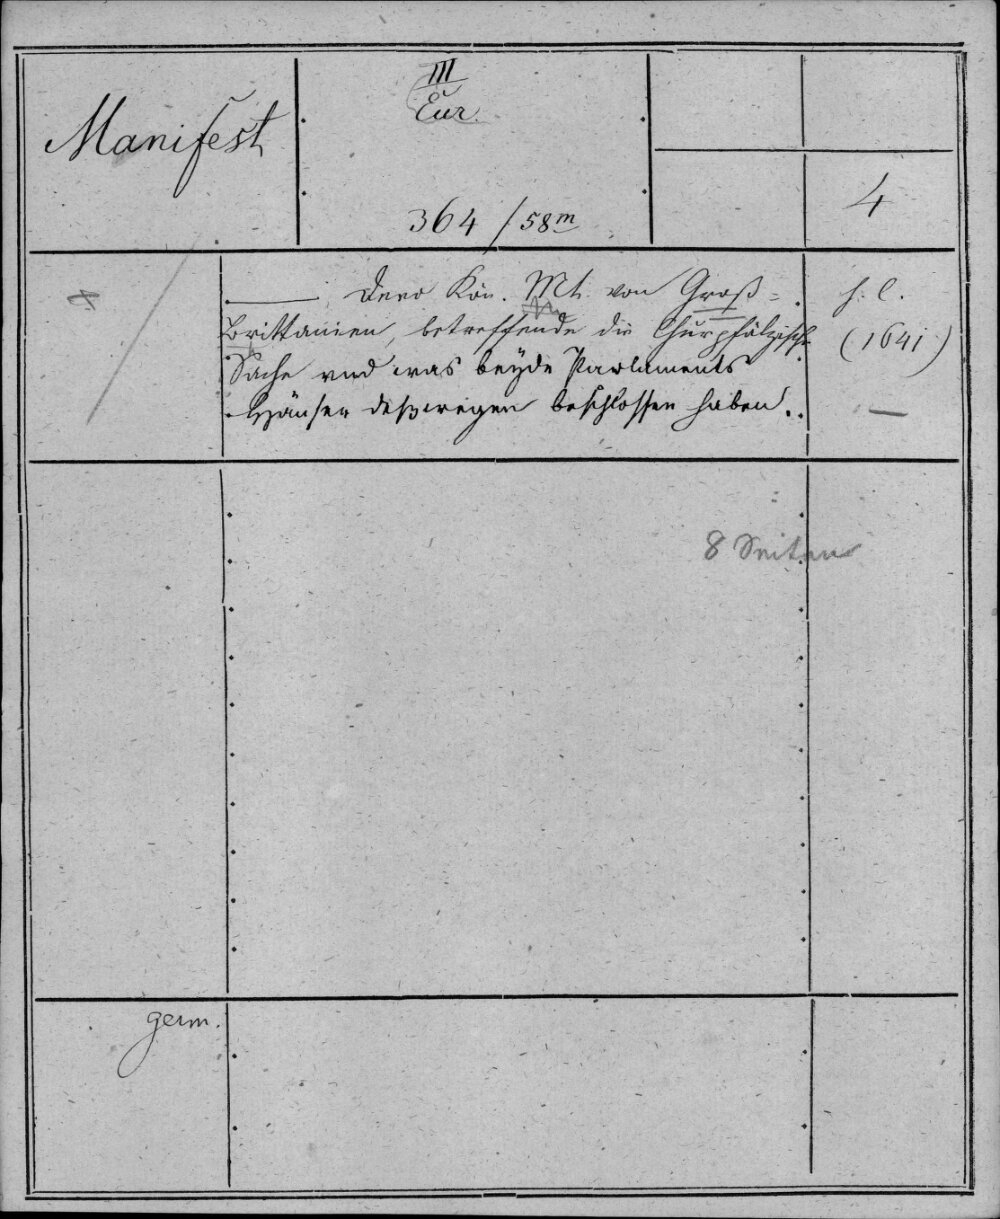 Manifest
III
Eur.
364/58m
4
4
——— Dero Kön. Mt. von Groß=
Brittanien, betreffende die Churpfälzische
Sache vnd was beyde Parlaments
Häuser deßwegen beschlossen haben.
s. l.
(1641)
—
8 Seiten
germ.